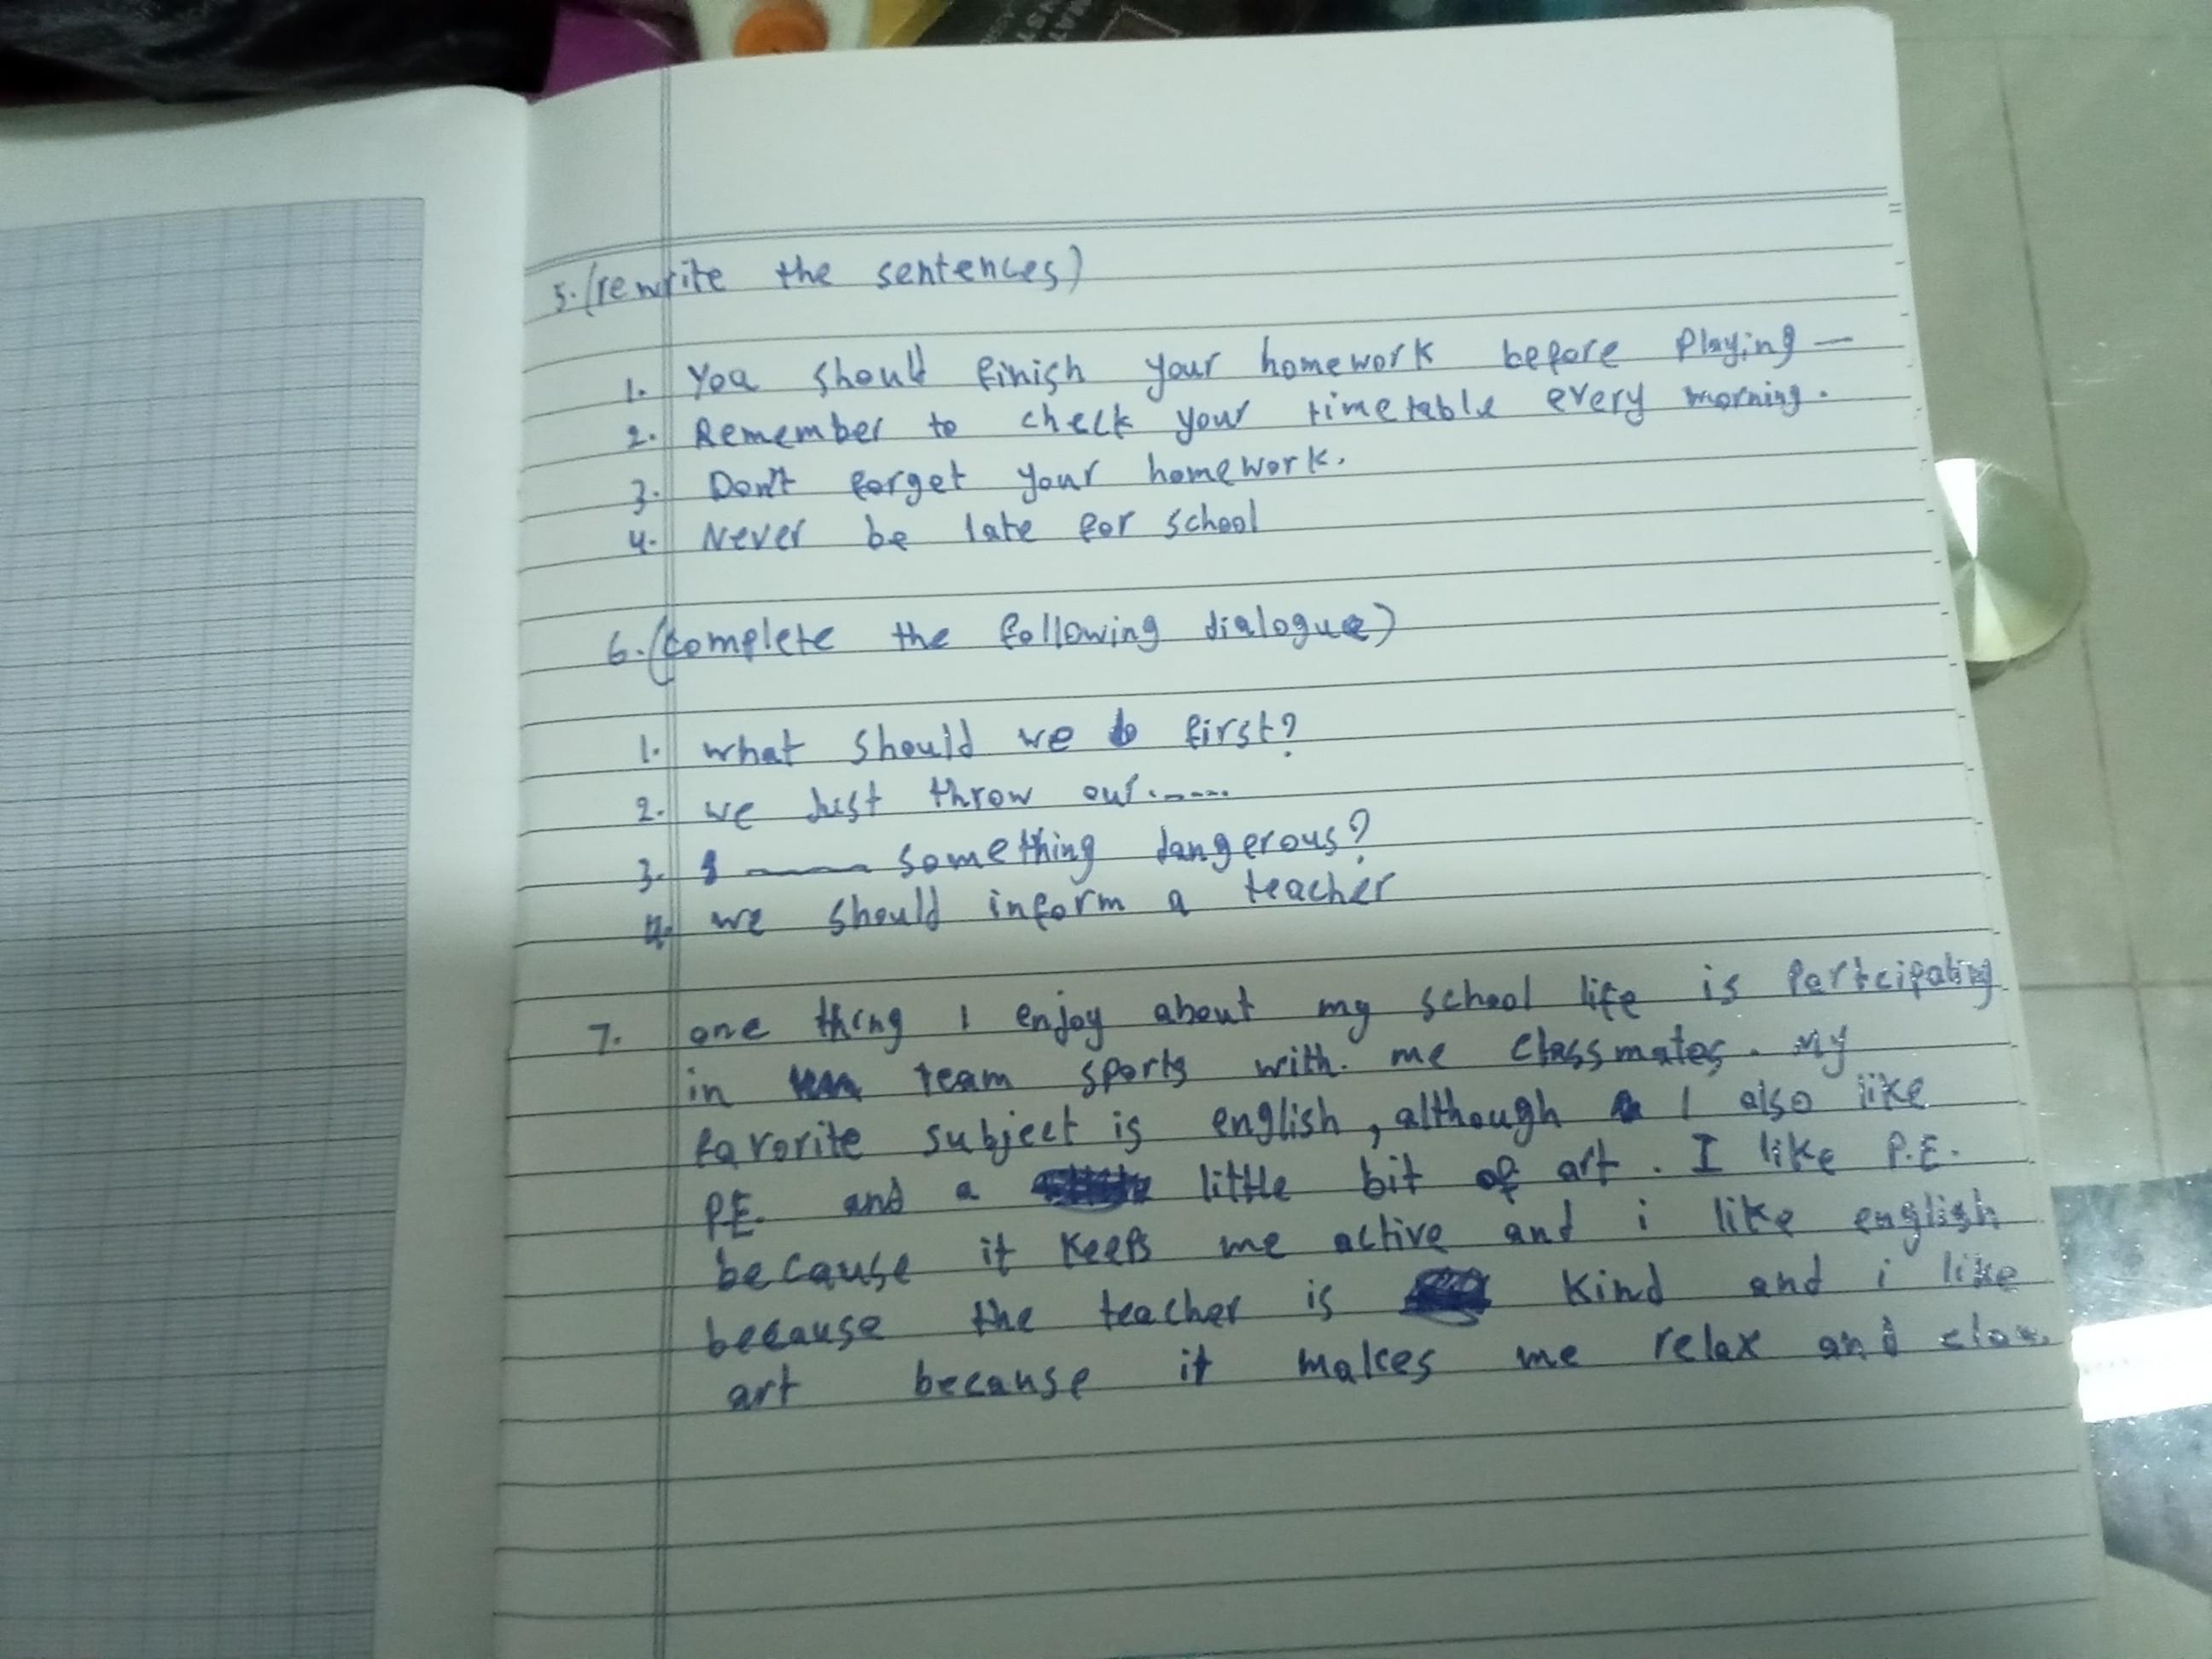 5. (rewrite the sentences)
1. You should finish your homework before Playing —
2. Remember to check your timetable every morning.
3. Don't forget your homework.
4. Never be late for school
6. (complete the following dialogue)
1. what should we do first?
2. we just throw our......
3. I ——— something dangerous?
4. we should inform a teacher
7. one thing I enjoy about my school life is Partcipating
in team sports with. me classmates. My
favorite subject is english, although I also like
P.E. and a little bit of art. I like P.E.
because it keeps me active and i like english
because the teacher is kind and i like
art because it makes me relax and